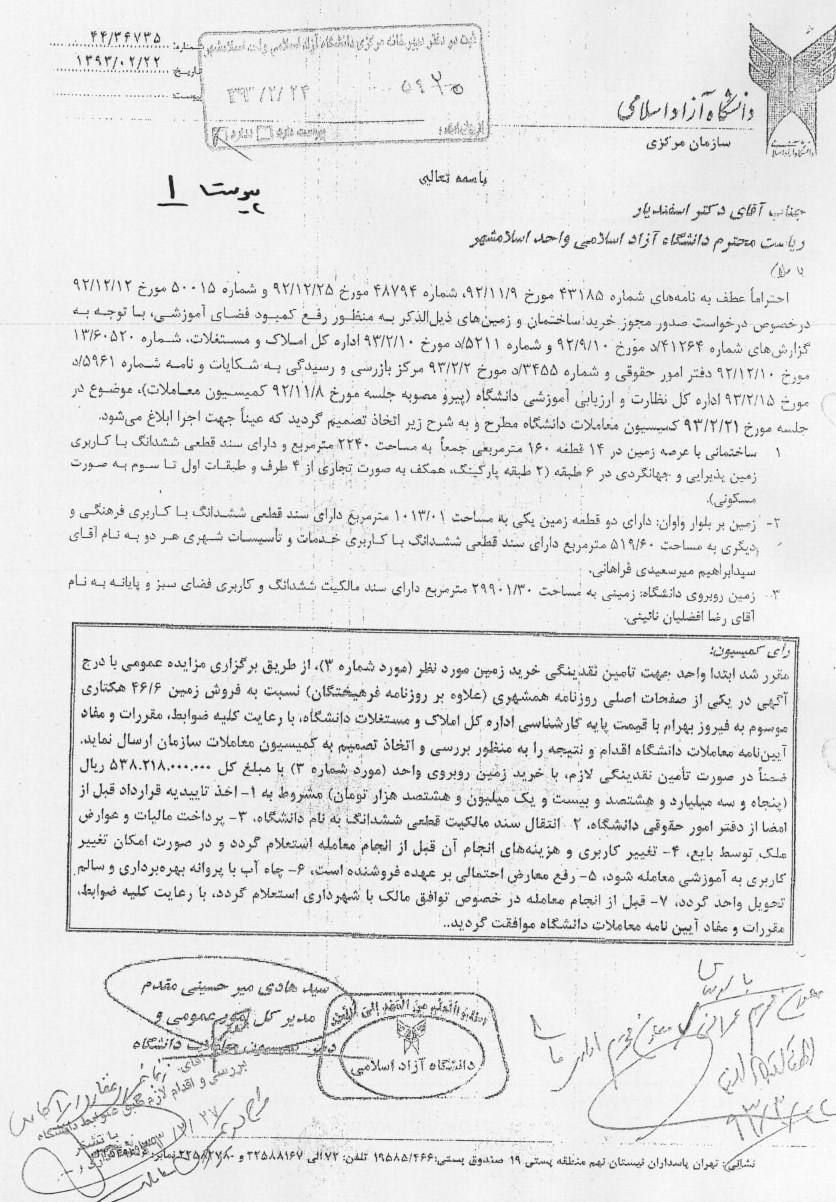 شماره: ۴۴/۳۶۷۳۵
تاریخ ۱۳۹۳/۰۲/۲۲
پیوست
ثبت در دفتر دبیرخانه مرکزی دانشگاه آزاد اسلامی واحد اسلامشهر
۹۳/۲/۲۴
پیوست دارد ندارد
دانشگاه آزاد اسلامی
سازمان مرکزی
باسمه تعالی
پیوست ۱
جناب آقای دکتر اسفندیار
ریاست محترم دانشگاه آزاد اسلامی واحد اسلامشهر
با سلام
احتراماً عطف به نامه‌های شماره ۴۳۱۸۵ مورخ ۹۲/۱۱/۹، شماره ۴۸۷۹۴ مورخ ۹۲/۱۲/۲۵ و شماره ۵۰۰۱۵ مورخ ۹۲/۱۲/۱۲
درخصوص درخواست صدور مجوز خرید ساختمان و زمین‌های ذیل‌الذکر به منظور رفع کمبود فضای آموزشی، با توجه به
گزارش‌های شماره ۴۱۲۶۴/د مورخ ۹۲/۹/۱۰ و شماره ۵۲۱۱/د مورخ ۹۳/۲/۱۰ اداره کل املاک و مستغلات، شماره ۱۳/۶۰۵۲۰
مورخ ۹۲/۱۲/۱۰ دفتر امور حقوقی و شماره ۳۴۵۵/د مورخ ۹۳/۲/۲ مرکز بازرسی و رسیدگی به شکایات و نامه شماره ۵۹۶۱/د
مورخ ۹۳/۲/۱۵ اداره کل نظارت و ارزیابی آموزشی دانشگاه (پیرو مصوبه جلسه مورخ ۹۲/۱۱/۸ کمیسیون معاملات)، موضوع در
جلسه مورخ ۹۳/۲/۲۱ کمیسیون معاملات دانشگاه مطرح و به شرح زیر اتخاذ تصمیم گردید که عیناً جهت اجرا ابلاغ می‌شود.
۱ ساختمانی با عرصه زمین در ۱۴ قطعه ۱۶۰ مترمربعی جمعاً به مساحت ۲۲۴۰ مترمربع و دارای سند قطعی ششدانگ با کاربری
زمین پذیرایی و جهانگردی در ۶ طبقه (۲ طبقه پارکینگ، همکف به صورت تجاری از ۴ طرف و طبقات اول تا سوم به صورت
مسکونی).
۲- زمین بر بلوار واوان: دارای دو قطعه زمین یکی به مساحت ۱۰۱۳/۰۱ مترمربع دارای سند قطعی ششدانگ با کاربری فرهنگی و
دیگری به مساحت ۵۱۹/۶۰ مترمربع دارای سند قطعی ششدانگ با کاربری خدمات و تأسیسات شهری هر دو به نام آقای
سیدابراهیم میرسعیدی فراهانی.
۳- زمین روبروی دانشگاه: زمینی به مساحت ۲۹۹۰۱/۳۰ مترمربع دارای سند مالکیت ششدانگ و کاربری فضای سبز و پایانه به نام
آقای رضا افضلیان نائینی.
رأی کمیسیون:
مقرر شد ابتدا واحد جهت تامین نقدینگی خرید زمین مورد نظر (مورد شماره ۳)، از طریق برگزاری مزایده عمومی با درج
آگهی در یکی از صفحات اصلی روزنامه همشهری (علاوه بر روزنامه فرهیختگان) نسبت به فروش زمین ۴۶/۶ هکتاری
موسوم به فیروز بهرام با قیمت پایه کارشناسی اداره کل املاک و مستغلات دانشگاه، با رعایت کلیه ضوابط، مقررات و مفاد
آیین‌نامه معاملات دانشگاه اقدام و نتیجه را به منظور بررسی و اتخاذ تصمیم به کمیسیون معاملات سازمان ارسال نماید.
ضمناً در صورت تأمین نقدینگی لازم، با خرید زمین روبروی واحد (مورد شماره ۳) با مبلغ کل ۵۳۸.۲۱۸.۰۰۰.۰۰۰ ریال
(پنجاه و سه میلیارد و هشتصد و بیست و یک میلیون و هشتصد هزار تومان) مشروط به ۱- اخذ تاییدیه قرارداد قبل از
امضا از دفتر امور حقوقی دانشگاه، ۲- انتقال سند مالکیت قطعی ششدانگ به نام دانشگاه، ۳- پرداخت مالیات و عوارض
ملک توسط بایع، ۴- تغییر کاربری و هزینه‌های انجام آن قبل از انجام معامله استعلام گردد و در صورت امکان تغییر
کاربری به آموزشی معامله شود، ۵- رفع معارض احتمالی بر عهده فروشنده است، ۶- چاه آب با پروانه بهره‌برداری و سالم
تحویل واحد گردد، ۷- قبل از انجام معامله در خصوص توافق مالک با شهرداری استعلام گردد، با رعایت کلیه ضوابط،
مقررات و مفاد آیین نامه معاملات دانشگاه موافقت گردید..
سید هادی میر حسینی مقدم
مدیر کل امور عمومی و
دبیر کمیسیون معاملات دانشگاه
اطلبوا العلم من المهد الی اللحد
دانشگاه آزاد اسلامی
بررسی و اقدام لازم طبق ضوابط دانشگاه
با تشکر
نشانی: تهران پاسداران نیستان نهم منطقه پستی ۱۹ صندوق پستی: ۱۹۵۸۵/۴۶۶ تلفن: ۷۲ الی ۲۲۵۸۸۱۶۷ و